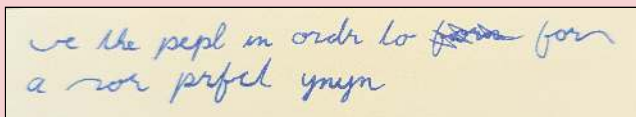 we the pepl in ordr to form for
a mor prfct ynyn